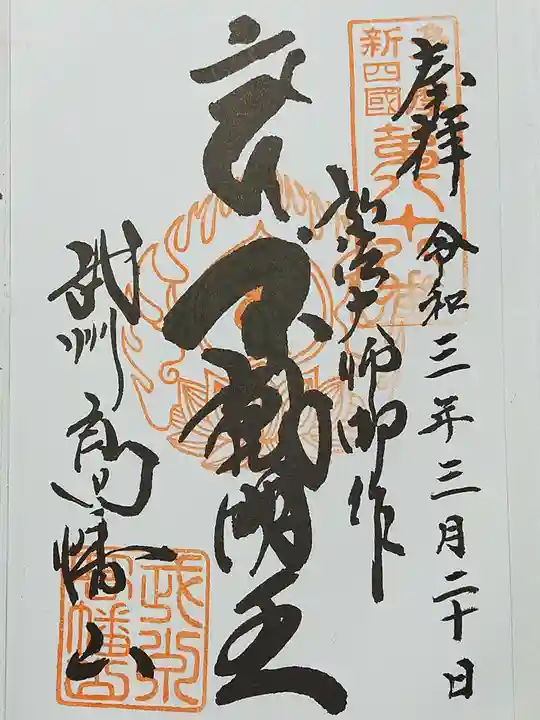 奉拝 令和三年三月二十日
弘法大師御作
不動明王
武州 高幡山
新四國
第八十